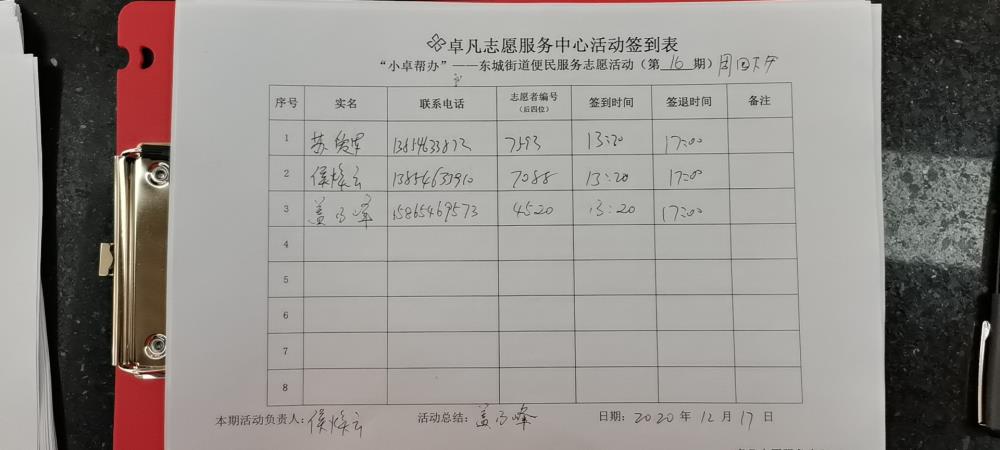 卓凡志愿服务中心活动签到表
“小卓帮办”——东城街道便民服务志愿活动（第 16 期）周四下午
序号 实名 联系电话 志愿者编号（后四位） 签到时间 签退时间 备注
1 苏 7593 13:20 17:00
2 侯焕云 7088 13:20 17:00
3 盖 峰 15865469573 4520 13:20 17:00
4
5
6
7
8
本期活动负责人：侯焕云 活动总结：盖 峰 日期：2020 年 12 月 17 日